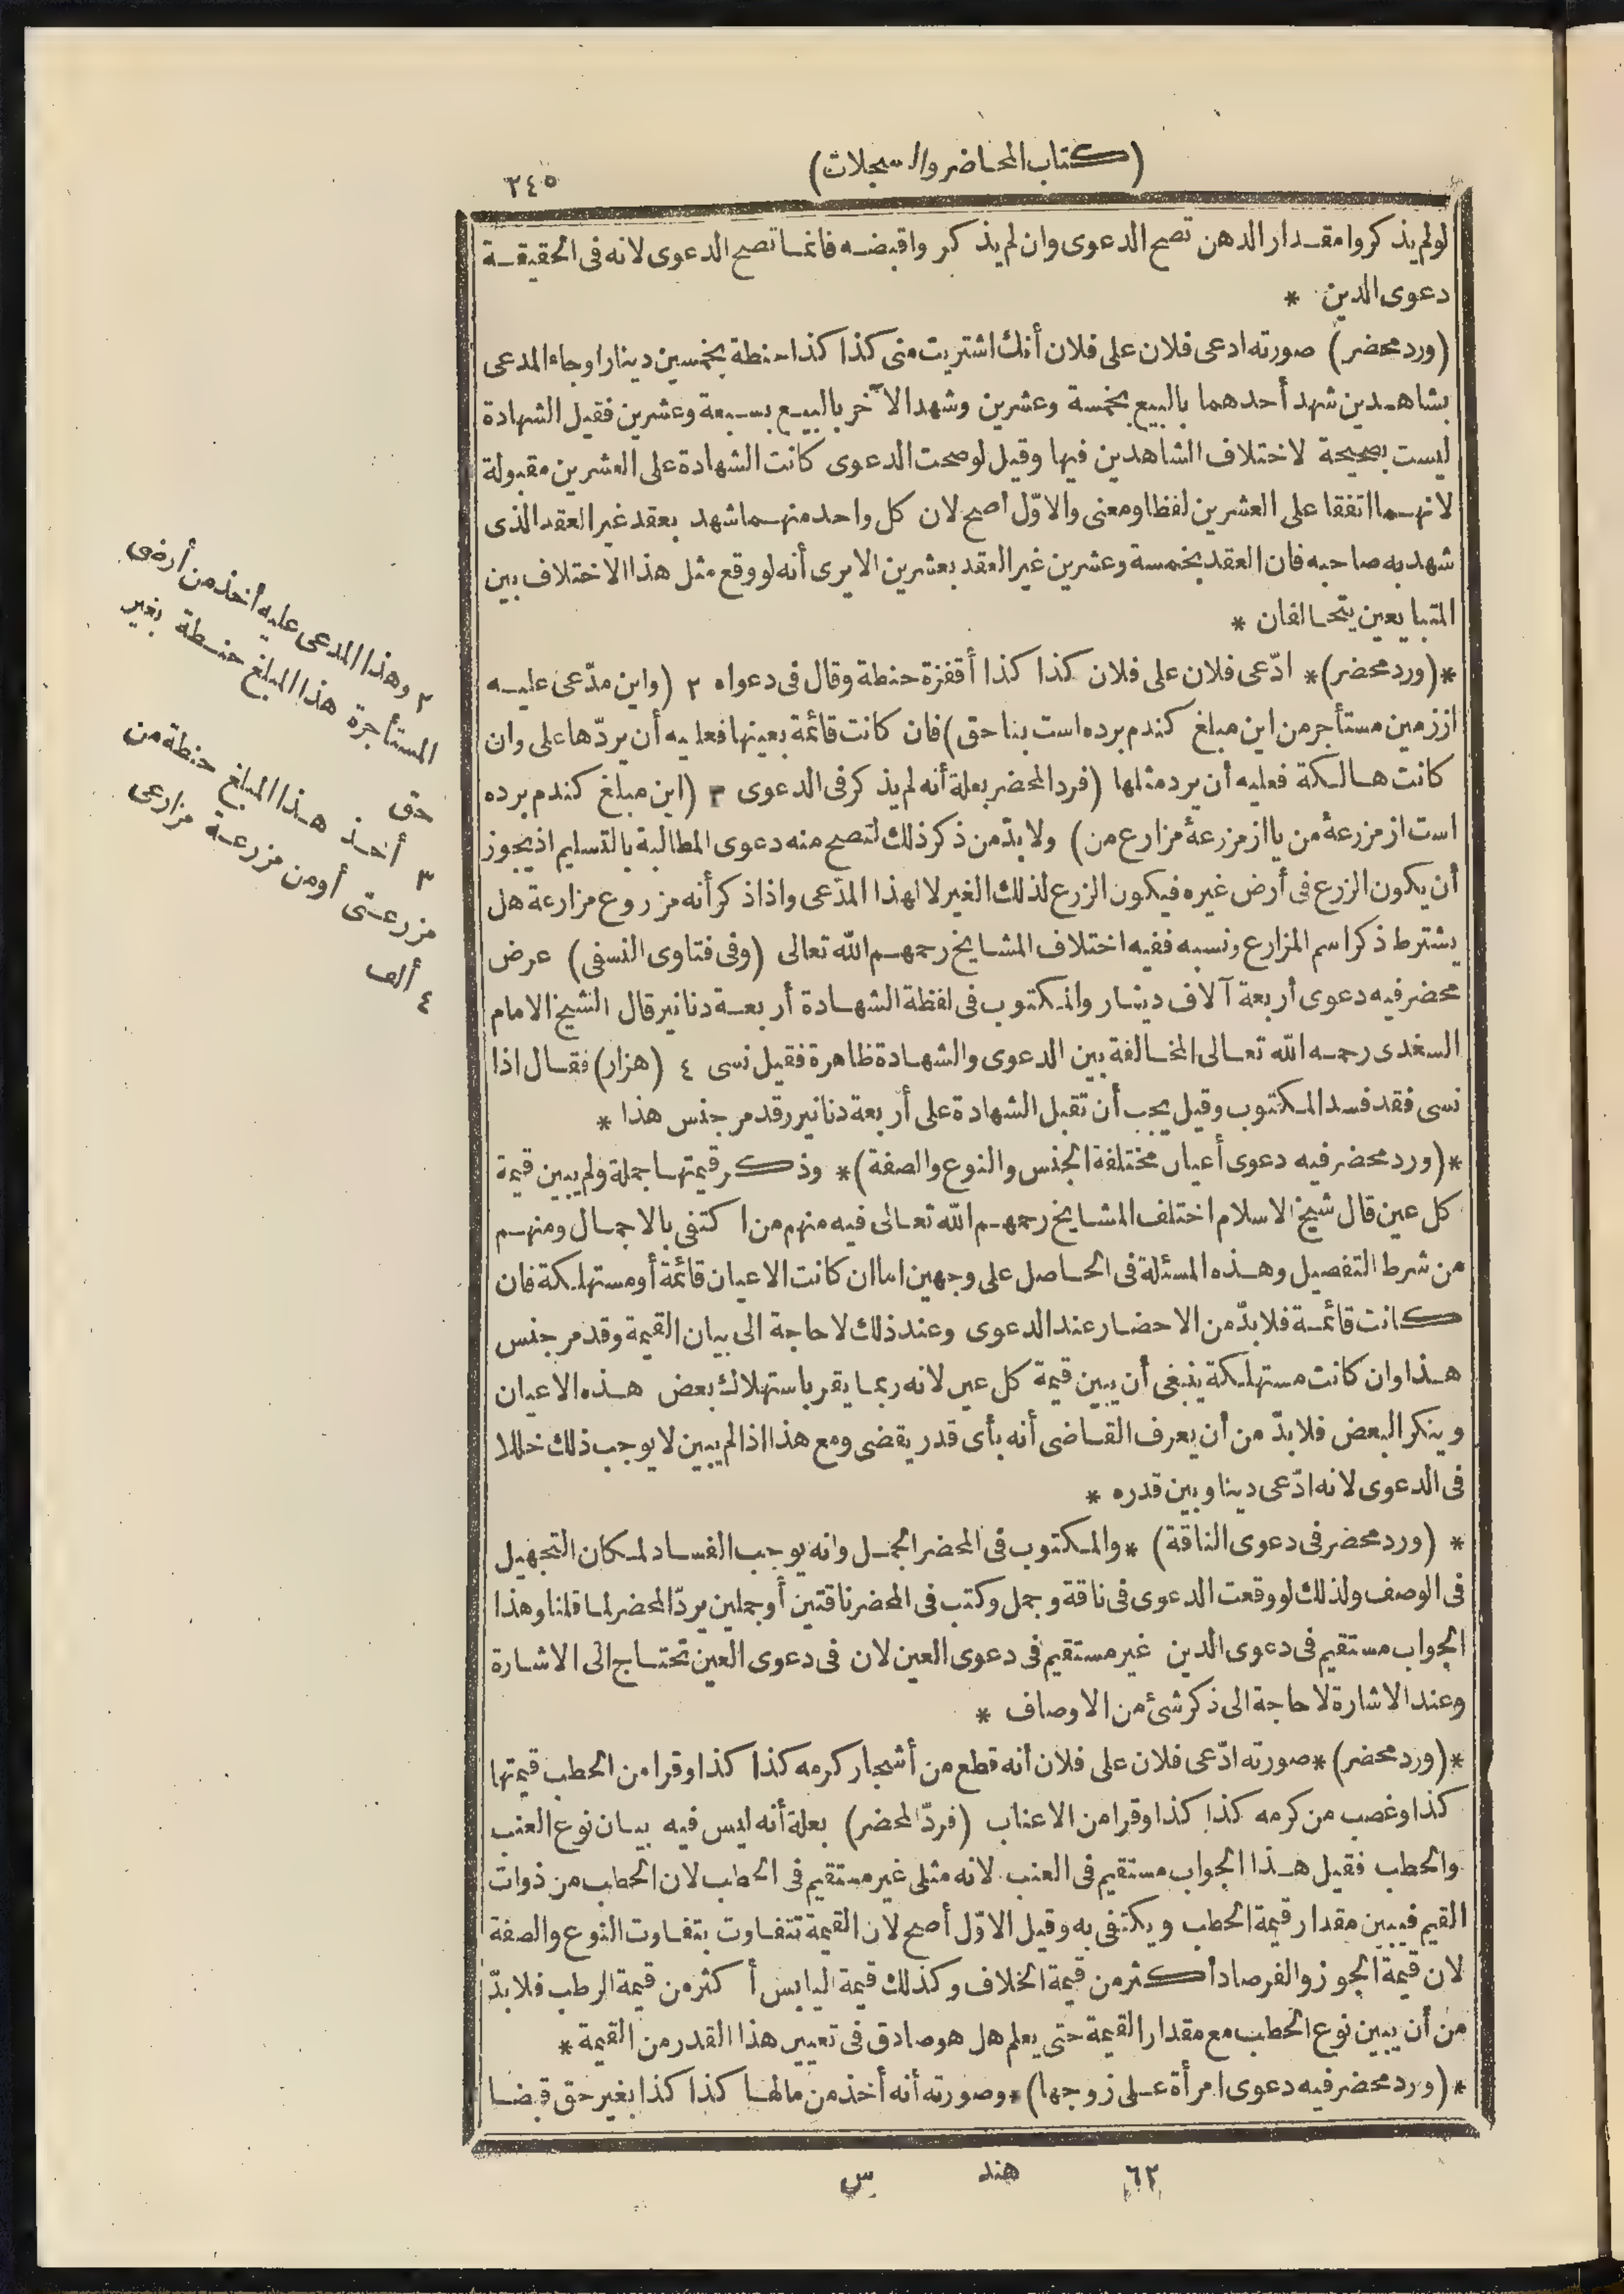 (كتاب المحاضر والسجلات)
٢٤٥
لو لم يذكروا مقدار الدهن تصح الدعوى وان لم يذكر واقبضه فانما تصح الدعوى لانه فى الحقيقة
دعوى الدين *
(ورد محضر) صورته ادعى فلان على فلان أنك اشتريت منى كذا كذا حنطة بخمسين دينارا وجاء المدعى
بشاهدين شهد أحدهما بالبيع بخمسة وعشرين وشهد الآخر بالبيع بسبعة وعشرين فقيل الشهادة
ليست بصحيحة لاختلاف الشاهدين فيها وقيل لو صحت الدعوى كانت الشهادة على العشرين مقبولة
لانهما اتفقا على العشرين لفظا ومعنى والاوّل أصح لان كل واحد منهما شهد بعقد غير العقد الذى
شهد به صاحبه فان العقد بخمسة وعشرين غير العقد بعشرين الا يرى أنه لو وقع مثل هذا الاختلاف بين
المتبايعين يتحالفان *
*(ورد محضر)* ادّعى فلان على فلان كذا كذا أقفزة حنطة وقال فى دعواه ٢ (واين مدّعى عليه
از زمين مستأجر من اين مبلغ كندم برده است بنا حق) فان كانت قائمة بعينها فعليه أن يردّها على وان
كانت هالكة فعليه أن يرد مثلها (فرد المحضر بعلة أنه لم يذكر فى الدعوى ٣ (اين مبلغ كندم برده
است از مزرعهٔ من يا از مزرعهٔ مزارع من) ولا بدّ من ذكر ذلك لتصح منه دعوى المطالبة بالتسليم اذ يجوز
أن يكون الزرع فى أرض غيره فيكون الزرع لذلك الغير لا لهذا المدّعى واذا ذكر أنه مزروع مزارعة هل
يشترط ذكر اسم المزارع ونسبه ففيه اختلاف المشايخ رحمهم الله تعالى (وفى فتاوى النسفى) عرض
محضر فيه دعوى أربعة آلاف دينار والمكتوب فى لفظة الشهادة أربعة دنانير قال الشيخ الامام
السغدى رحمه الله تعالى المخالفة بين الدعوى والشهادة ظاهرة فقيل نسى ٤ (هزار) فقال اذا
نسى فقد فسد المكتوب وقيل يجب أن تقبل الشهادة على أربعة دنانير وقد مر جنس هذا *
*(ورد محضر فيه دعوى أعيان مختلفة الجنس والنوع والصفة)* وذكر قيمتها جملة ولم يبين قيمة
كل عين قال شيخ الاسلام اختلف المشايخ رحمهم الله تعالى فيه منهم من اكتفى بالاجمال ومنهم
من شرط التفصيل وهذه المسئلة فى الحاصل على وجهين اما ان كانت الاعيان قائمة أو مستهلكة فان
كانت قائمة فلا بدّ من الاحضار عند الدعوى وعند ذلك لا حاجة الى بيان القيمة وقد مر جنس
هذا وان كانت مستهلكة ينبغى أن يبين قيمة كل عين لانه ربما يقر باستهلاك بعض هذه الاعيان
وينكر البعض فلا بدّ من أن يعرف القاضى أنه بأى قدر يقضى ومع هذا اذا لم يبين لا يوجب ذلك خللا
فى الدعوى لانه ادّعى دينا وبين قدره *
* (ورد محضر فى دعوى الناقة) * والمكتوب فى المحضر الجمل وانه يوجب الفساد لمكان التجهيل
فى الوصف ولذلك لو وقعت الدعوى فى ناقة وجمل وكتب فى المحضر ناقتين أو جملين يردّ المحضر لما قلنا وهذا
الجواب مستقيم فى دعوى الدين غير مستقيم فى دعوى العين لان فى دعوى العين تحتاج الى الاشارة
وعند الاشارة لا حاجة الى ذكر شئ من الاوصاف *
*(ورد محضر)* صورته ادّعى فلان على فلان أنه قطع من أشجار كرمه كذا كذا وقرا من الحطب قيمتها
كذا وغصب من كرمه كذا كذا وقرا من الاعناب (فردّ المحضر) بعلة أنه ليس فيه بيان نوع العنب
والحطب فقيل هذا الجواب مستقيم فى العنب لانه مثلى غير مستقيم فى الحطب لان الحطب من ذوات
القيم فيبين مقدار قيمة الحطب ويكتفى به وقيل الاوّل أصح لان القيمة تتفاوت بتفاوت النوع والصفة
لان قيمة الجوز والفرصاد أكثر من قيمة الخلاف وكذلك قيمة اليابس أكثر من قيمة الرطب فلا بدّ
من أن يبين نوع الحطب مع مقدار القيمة حتى يعلم هل هو صادق فى تعيير هذا القدر من القيمة *
*(ورد محضر فيه دعوى امرأة على زوجها)* وصورته أنه أخذ من مالها كذا كذا بغير حق قبضا
٢ وهذا المدعى عليه أخذ من أرضى
المستأجرة هذا المبلغ حنطة بغير
حق
٣ أخذ هذا المبلغ حنطة من
مزرعتى أو من مزرعة مزارعى
٤ ألف
٦٢ هند س